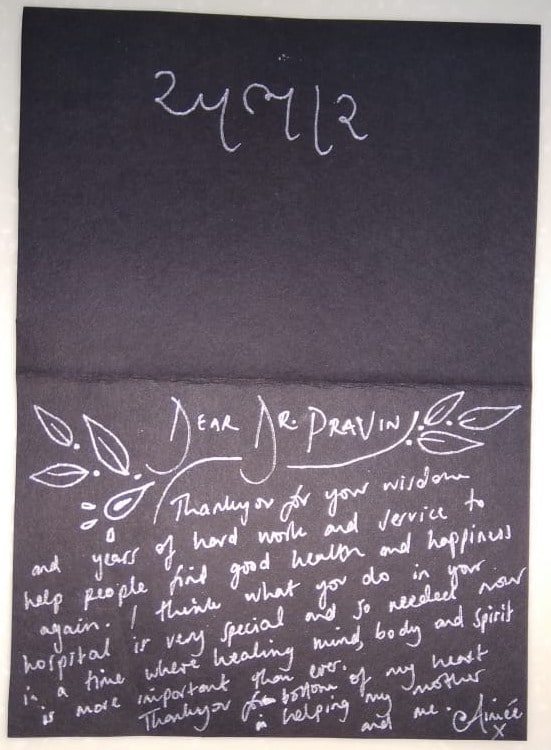 અભાર
DEAR DR. PRAVIN
Thankyou for your wisdom
and years of hard work and service to
help people find good health and happiness
again. I think what you do in your
hospital is very special and so needed now
in a time where healing mind, body and spirit
is more important than ever.
Thankyou bottom of my heart
in helping my mother
and me. Aimée
x